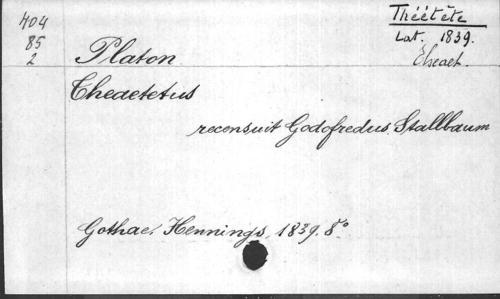 404
85
2
Théétète
Lat. 1839.
Theaet.
Platon
Theaetetus
reconsuit Godofredus Stallbaum
Gothae, Hennings, 1839. 8°